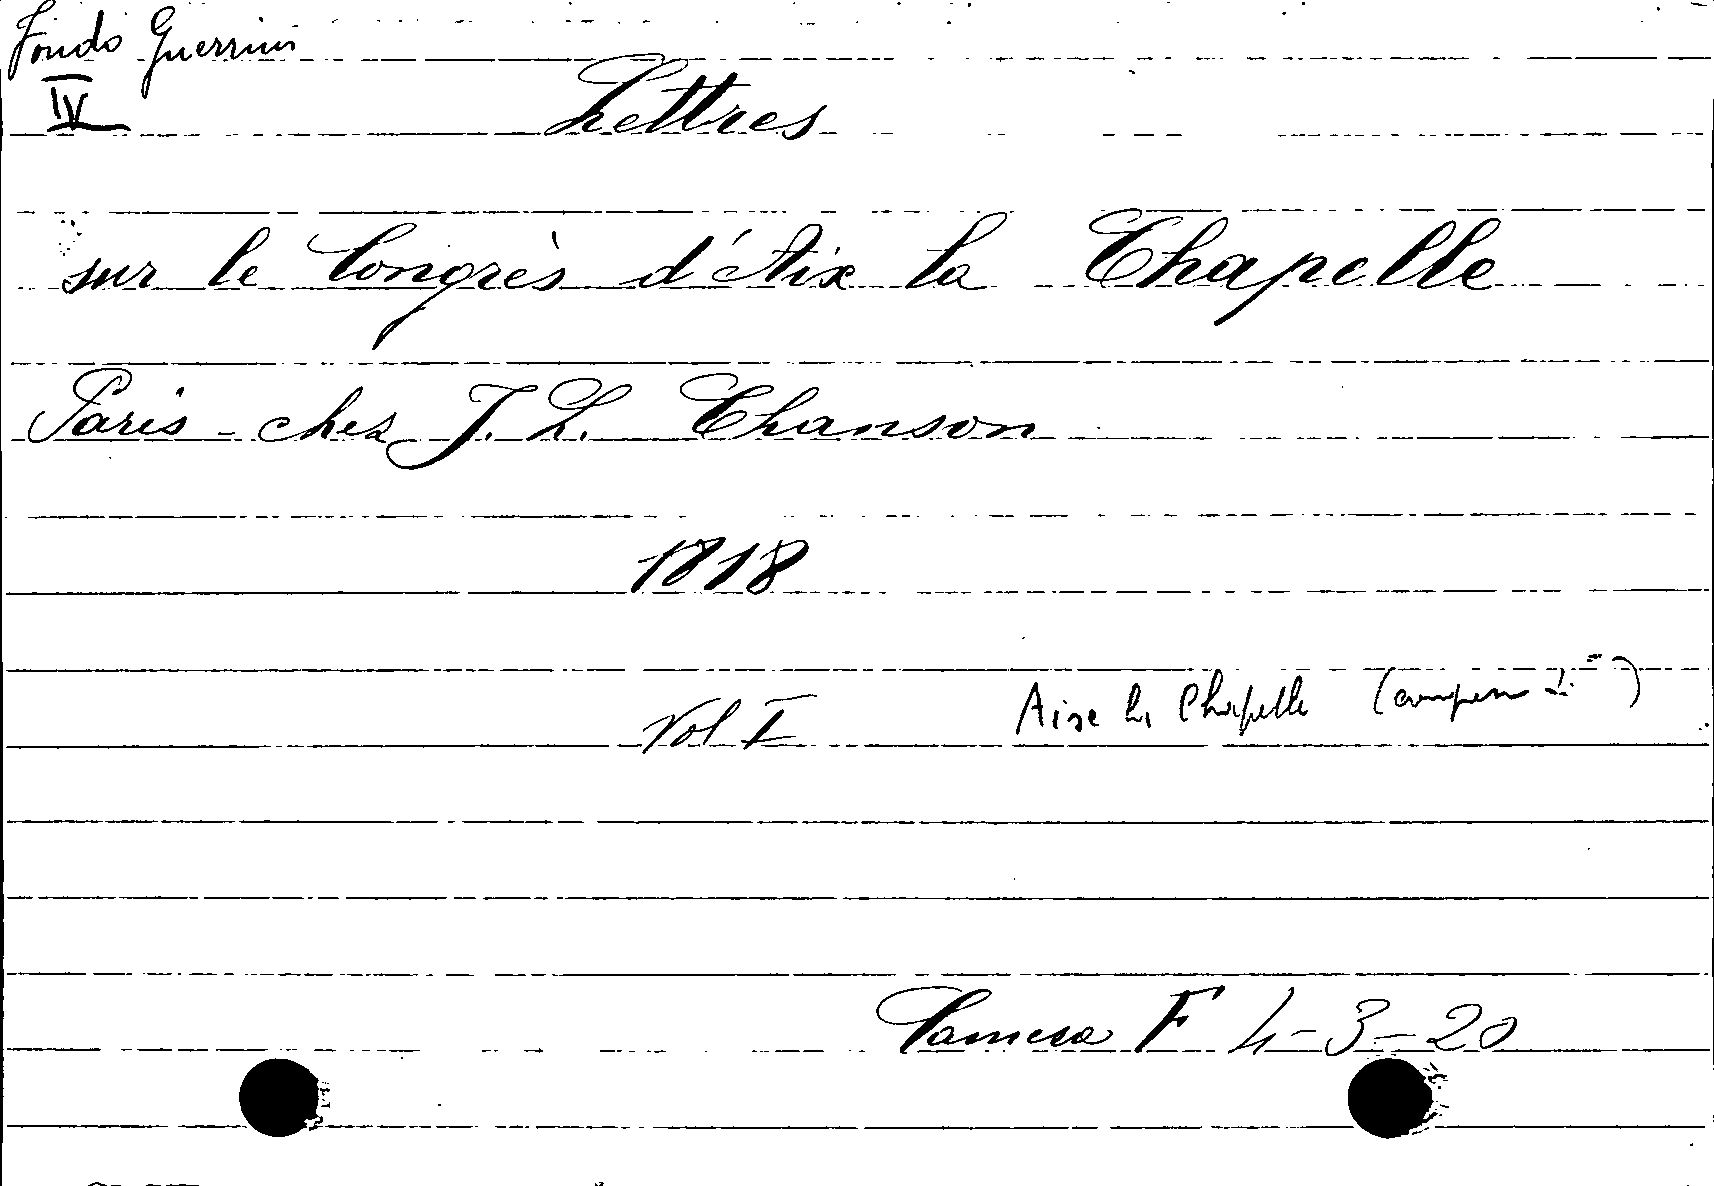 Fondo Guerrini
IV
Lettres
sur le Congrès d'Aix la Chapelle
Paris - chez J. L. Chanson
1818
Vol I
Aix la Chapelle
Camera F 4-3-20